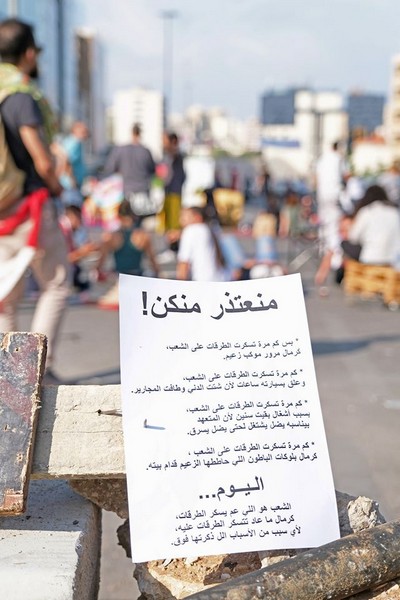 منعتذر منكن!
* بس كم مرة تسكرت الطرقات على الشعب،
كرمال مرور موكب زعيم.
* كم مرة تسكرت الطرقات على الشعب،
وعلق بسيارته ساعات لأن شتت الدني وطافت المجارير.
* كم مرة تسكرت الطرقات على الشعب،
بسبب أشغال بقيت سنين لأن المتعهد
بيناسبه يضل يشتغل لحتى يضل يسرق.
* كم مرة تسكرت الطرقات على الشعب،
كرمال بلوكات الباطون اللي حاططها الزعيم قدام بيته.
اليوم...
الشعب هو اللي عم يسكر الطرقات،
كرمال ما عاد تتسكر الطرقات عليه،
لأي سبب من الأسباب اللي ذكرتها فوق.